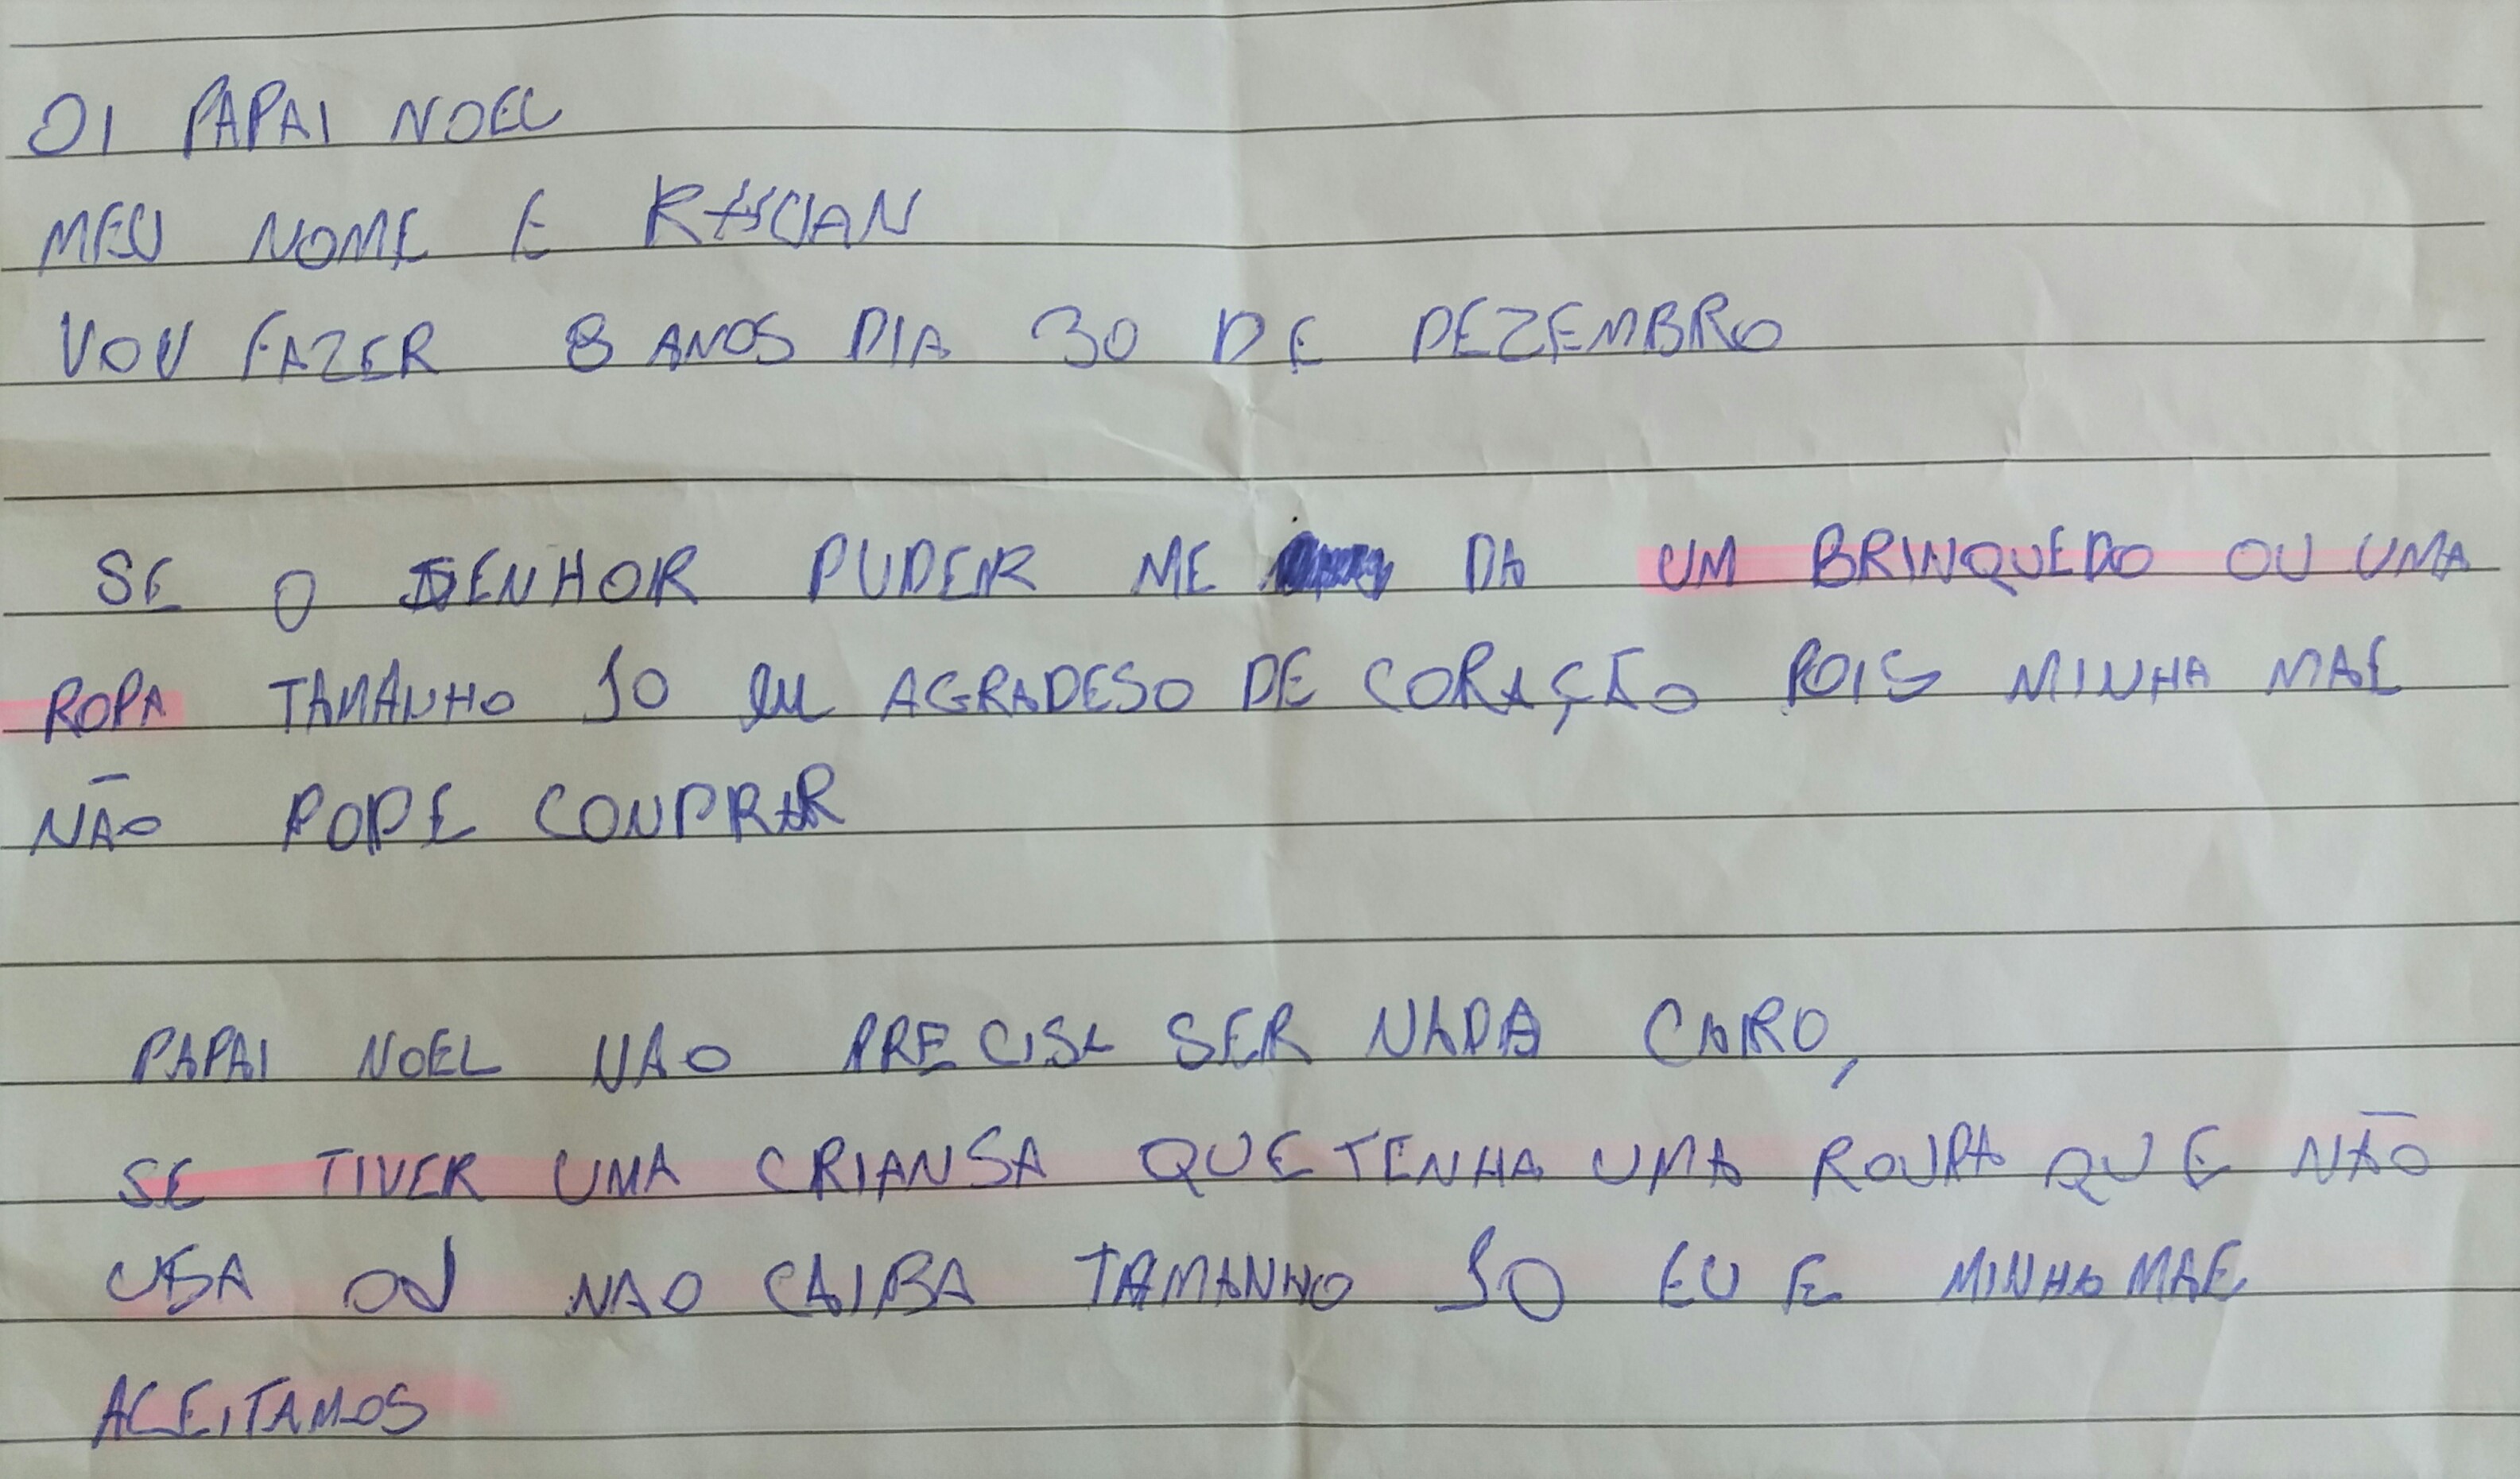 OI PAPAI NOEL
MEU NOME E
VOU FAZER 8 ANOS DIA 30 DE DEZEMBRO
SE O SENHOR PUDER ME DA UM BRINQUEDO OU UMA
ROPA TAMANHO 10 eu AGRADESO DE CORAÇÃO POIS MINHA MAE
NÃO PODE CONPRAR
PAPAI NOEL NAO PRECISA SER NADA CARO,
SE TIVER UMA CRIANSA QUE TENHA UMA ROUPA QUE NÃO
USA OU NAO CAIBA TAMANHO 10 EU E MINHA MAE
ACEITAMOS